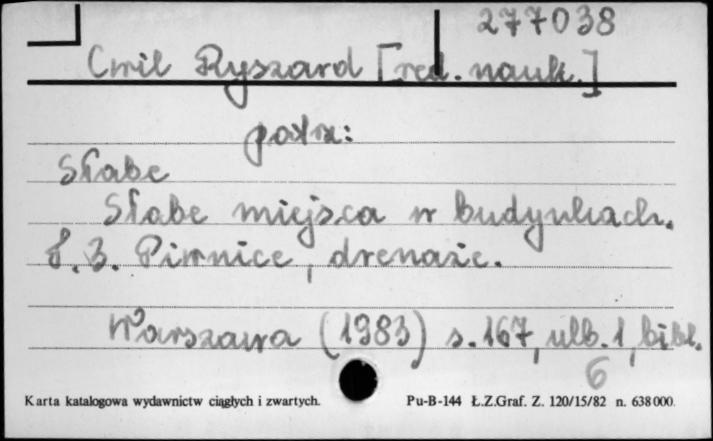 277038
Ćwil Ryszard [red. nauk.]
patrz:
Słabe
Słabe miejsca w budynkach.
T. 3. Piwnice, drenaże.
Warszawa (1983) s. 167, nlb. 1, bibl.
6
Karta katalogowa wydawnictw ciągłych i zwartych. Pu-B-144 Ł.Z.Graf. Z. 120/15/82 n. 638000.